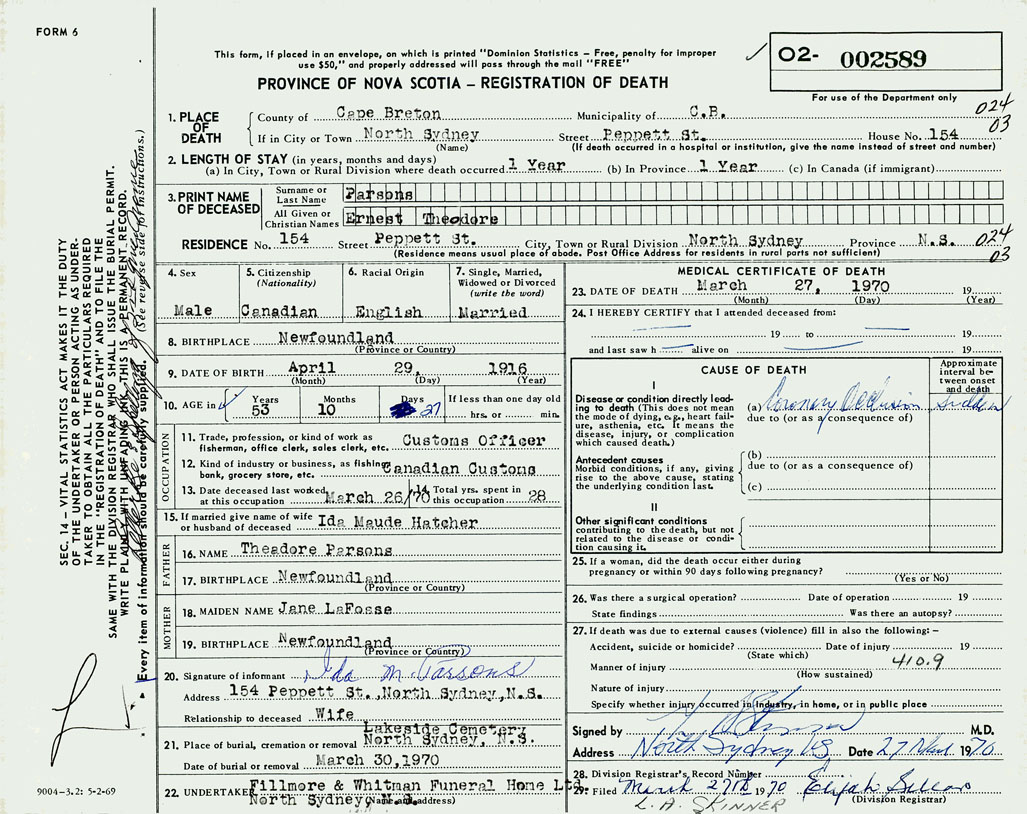 FORM 6
This form, if placed in an envelope, on which is printed "Dominion Statistics – Free, penalty for improper
use $50," and properly addressed will pass through the mail "FREE"
PROVINCE OF NOVA SCOTIA – REGISTRATION OF DEATH
02- 002589
For use of the Department only
024
03
1. PLACE OF DEATH
County of Cape Breton Municipality of C.B.
If in City or Town North Sydney Street Peppett St. House No. 154
(Name) (If death occurred in a hospital or institution, give the name instead of street and number)
2. LENGTH OF STAY (in years, months and days)
(a) In City, Town or Rural Division where death occurred 1 Year (b) In Province 1 Year (c) In Canada (if immigrant)
3. PRINT NAME OF DECEASED
Surname or Last Name Parsons
All Given or Christian Names Ernest Theodore
RESIDENCE No. 154 Street Peppett St. City, Town or Rural Division North Sydney Province N.S.
(Residence means usual place of abode. Post Office Address for residents in rural parts not sufficient)
024
03
4. Sex
Male
5. Citizenship
(Nationality)
Canadian
6. Racial Origin
English
7. Single, Married,
Widowed or Divorced
(write the word)
Married
8. BIRTHPLACE Newfoundland
(Province or Country)
9. DATE OF BIRTH April 29, 1916
(Month) (Day) (Year)
10. AGE in
Years 53
Months 10
Days 27
If less than one day old
hrs. or min.
OCCUPATION
11. Trade, profession, or kind of work as
fisherman, office clerk, sales clerk, etc. Customs Officer
12. Kind of industry or business, as fishing
bank, grocery store, etc. Canadian Customs
13. Date deceased last worked
at this occupation March 26/70
14. Total yrs. spent in
this occupation 28
15. If married give name of wife
or husband of deceased Ida Maude Hatcher
FATHER
16. NAME Theadore Parsons
17. BIRTHPLACE Newfoundland
(Province or Country)
MOTHER
18. MAIDEN NAME Jane LaFosse
19. BIRTHPLACE Newfoundland
(Province or Country)
20. Signature of informant Ida M. Parsons
Address 154 Peppett St., North Sydney, N.S.
Relationship to deceased Wife
21. Place of burial, cremation or removal Lakeside Cemetery
North Sydney, N.S.
Date of burial or removal March 30,1970
22. UNDERTAKER Fillmore & Whitman Funeral Home Ltd.
North Sydney
(Name and address)
MEDICAL CERTIFICATE OF DEATH
23. DATE OF DEATH March 27, 1970 19
(Month) (Day) (Year)
24. I HEREBY CERTIFY that I attended deceased from:
19 to 19
and last saw h alive on 19
CAUSE OF DEATH
Approximate
interval be-
tween onset
and death
I
Disease or condition directly lead-
ing to death (This does not
mean the mode of dying, e.g., heart fail-
ure, asthenia, etc. It means the
disease, injury, or complication
which caused death.)
(a) Coronary Occlusion Sudden
due to (or as a consequence of)
Antecedent causes
Morbid conditions, if any, giving
rise to the above cause, stating
the underlying condition last.
(b)
due to (or as a consequence of)
(c)
II
Other significant conditions
contributing to the death, but not
related to the disease or condi-
tion causing it.
25. If a woman, did the death occur either during
pregnancy or within 90 days following pregnancy?
(Yes or No)
26. Was there a surgical operation? Date of operation 19
State findings Was there an autopsy?
27. If death was due to external causes (violence) fill in also the following: –
Accident, suicide or homicide? Date of injury 19
(State which)
410.9
Manner of injury
(How sustained)
Nature of injury
Specify whether injury occurred in industry, in home, or in public place
Signed by M.D.
Address North Sydney N.S. Date 27 Mar. 1970
28. Division Registrar's Record Number
29. Filed March 27th 1970
(Division Registrar)
L. A. SKINNER
SEC. 14 – VITAL STATISTICS ACT MAKES IT THE DUTY
OF THE UNDERTAKER OR PERSON ACTING AS UNDER-
TAKER TO OBTAIN ALL THE PARTICULARS REQUIRED
IN THE "REGISTRATION OF DEATH" AND TO FILE THE
SAME WITH THE DIVISION REGISTRAR WHO SHALL ISSUE THE BURIAL PERMIT.
WRITE PLAINLY WITH UNFADING INK. THIS IS A PERMANENT RECORD.
Every item of information should be carefully supplied. (See reverse side for instructions.)
9004-3.2: 5-2-69